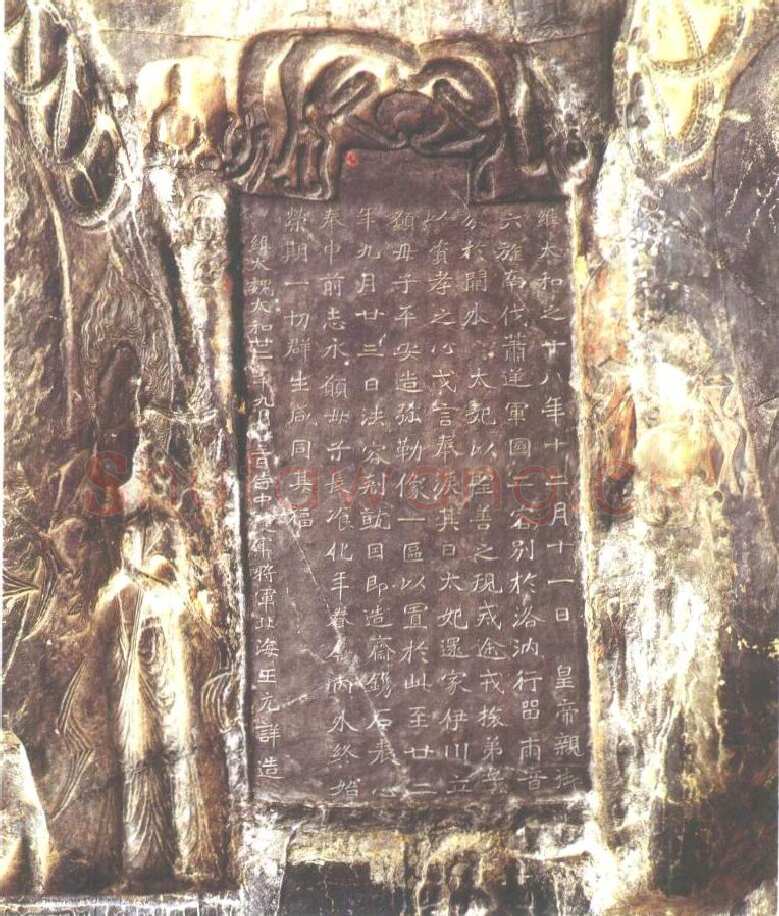 維太和之十八年十二月十一日 皇帝親御
六旌南伐蕭逆軍國二容別於洛汭行留兩音
分於闕外 太妃以聖善之規戒途戎旅弟子
以資孝之心戈言奉淚其日太妃還家伊川立
願母子平安造弥勒像一區以置於此至廿二
年九月廿三日法容剋就因即造齋鐫石表心
奉申前志永願母子長飡化年眷內外終始
榮期一切群生咸同其福
維大魏太和廿二年九月三日侍中護軍將軍北海王元詳造